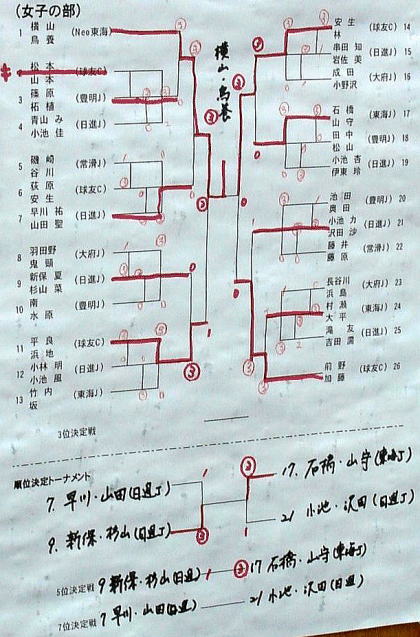 (女子の部)
1 横山 鳥養 (Neo東海)
2 松本 山本 (球友C)
3 篠原 柘植 (豊明J)
4 青山み 小池佳 (日進J)
5 磯崎 谷川 (常滑J)
6 荻原 安生 (球友C)
7 早川祐 山田聖 (日進J)
8 羽田野 鬼頭 (大府J)
9 新保夏 杉山菜 (日進J)
10 南 水原 (豊明J)
11 平良 浜地 (球友C)
12 小林明 小池風 (日進J)
13 竹内 坂 (東海J)
横山・鳥養
安生 林 (球友C) 14
串田知 岩佐美 (日進J) 15
成田 小野沢 (大府J) 16
石橋 山守 (東海J) 17
田中 松山 (豊明J) 18
小池杏 伊東玲 (日進J) 19
池田 奥田 (豊明J) 20
小池力 沢田沙 (日進J) 21
藤井 藤原 (常滑J) 22
長谷川 浜島 (大府J) 23
村瀬 大平 (東海J) 24
滝友 吉田 (日進J) 25
前野 加藤 (球友C) 26
3位決定戦
順位決定トーナメント
7. 早川・山田(日進J)
9. 新保・杉山(日進J)
17. 石橋・山守(東海J)
21 小池・沢田(日進J)
5位決定戦 9 新保・杉山(日進J) 1 ③ 17 石橋・山守(東海J)
7位決定戦 7 早川・山田(日進) 21 小池・沢田(日進)